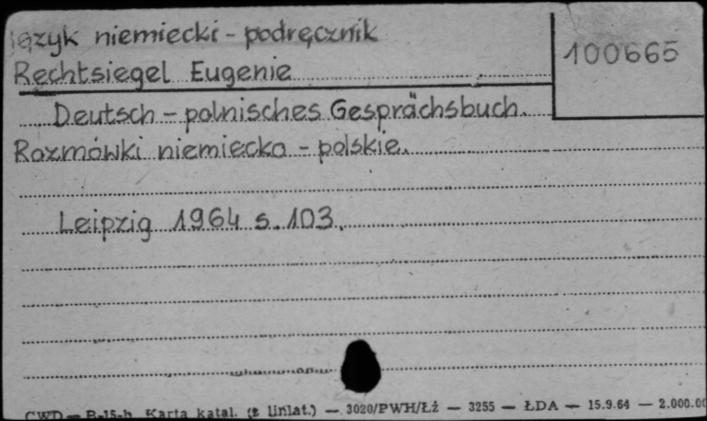 język niemiecki - podręcznik
100665
Rechtsiegel Eugenie
Deutsch - polnisches Gesprächsbuch.
Rozmówki niemiecko - polskie.
Leipzig 1964 s. 103.
CWD — B-15-h Karta katal. (z liniat.) — 3020/PWH/Łż — 3255 — ŁDA — 15.9.64 — 2.000.00